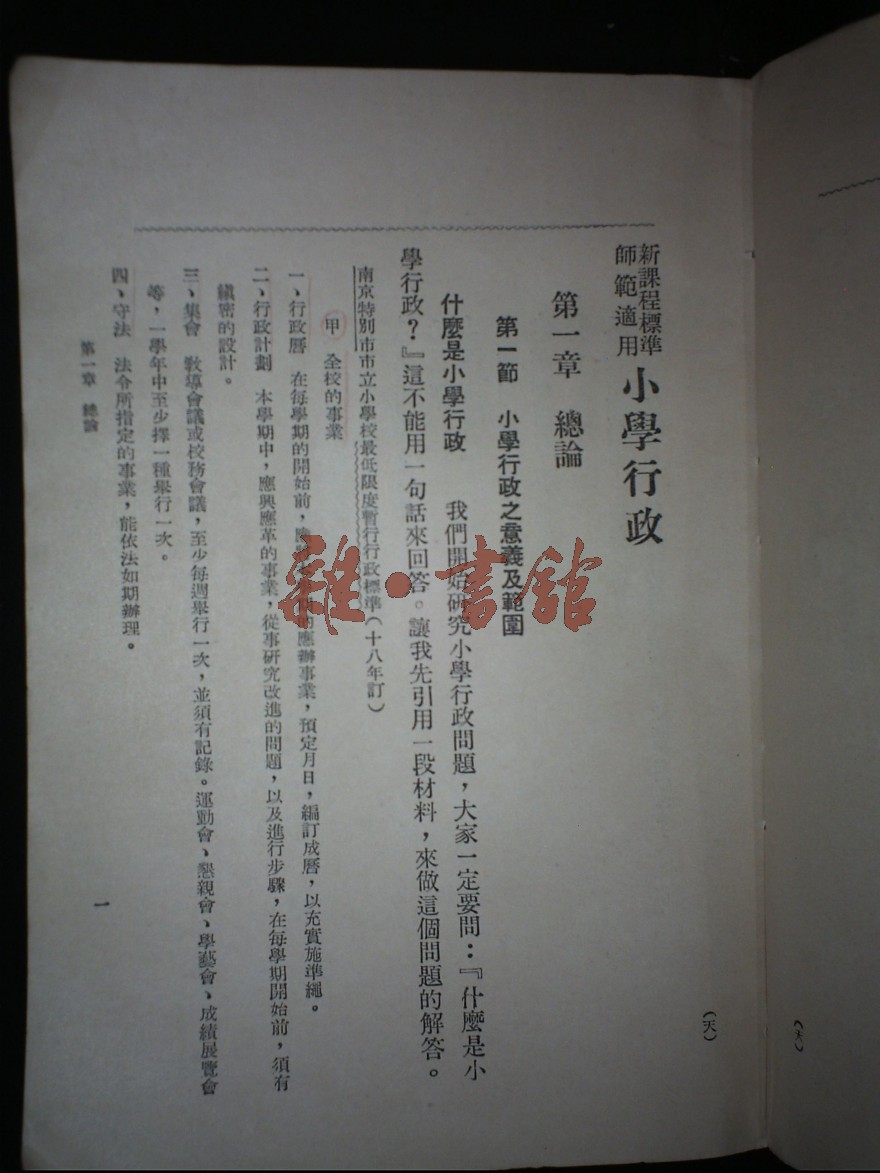 新課程標準
師範適用
小學行政
第一章 總論
第一節 小學行政之意義及範圍
什麼是小學行政 我們開始研究小學行政問題，大家一定要問：『什麼是小
學行政？』這不能用一句話來回答。讓我先引用一段材料，來做這個問題的解答。
南京特別市市立小學校最低限度暫行行政標準（十八年訂）
甲 全校的事業
一、行政曆 在每學期的開始前，應將本學期的應辦事業，預定月日，編訂成曆，以充實施準繩。
二、行政計劃 本學期中，應興應革的事業，從事研究改進的問題，以及進行步驟，在每學期開始前，須有
縝密的設計。
三、集會 教導會議或校務會議，至少每週舉行一次，並須有記錄。運動會、懇親會、學藝會、成績展覽會
等，一學年中至少擇一種舉行一次。
四、守法 法令所指定的事業，能依法如期辦理。
第一章 總論
一
（天）
（天）
雜·書館